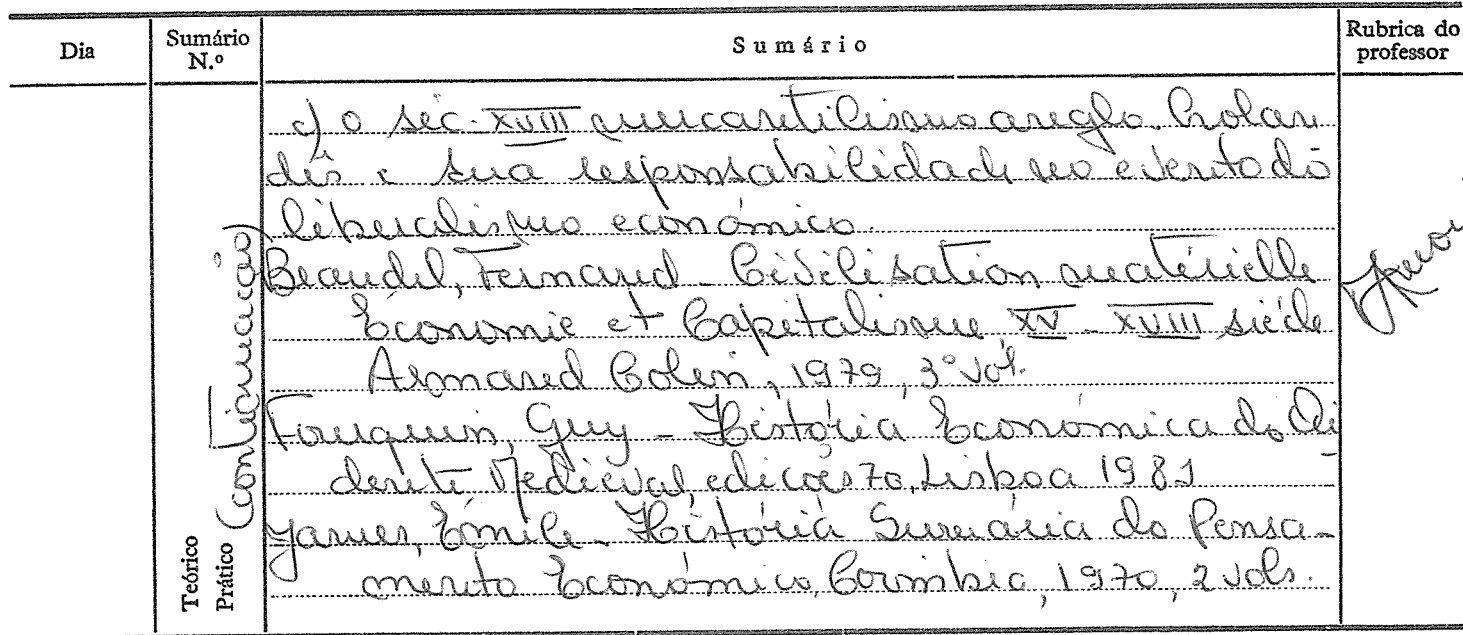 Dia
Sumário N.º
Sumário
Rubrica do professor
c) o séc. XVIII mercantilismo anglo-holan
dês e sua responsabilidade no evento do
liberalismo económico.
Beaudel, Fernand - Civilisation matérielle
Économie et Capitalisme XV - XVIII siécle
Armand Colin, 1979, 3º vol.
Fourquin, Guy - História Económica do Oci
dente Medieval, edições 70, Lisboa 1981
James, Émile - História Sumária do Pensa-
mento Económico, Coimbra, 1970, 2 vols.
Teórico
Prático (continuação)